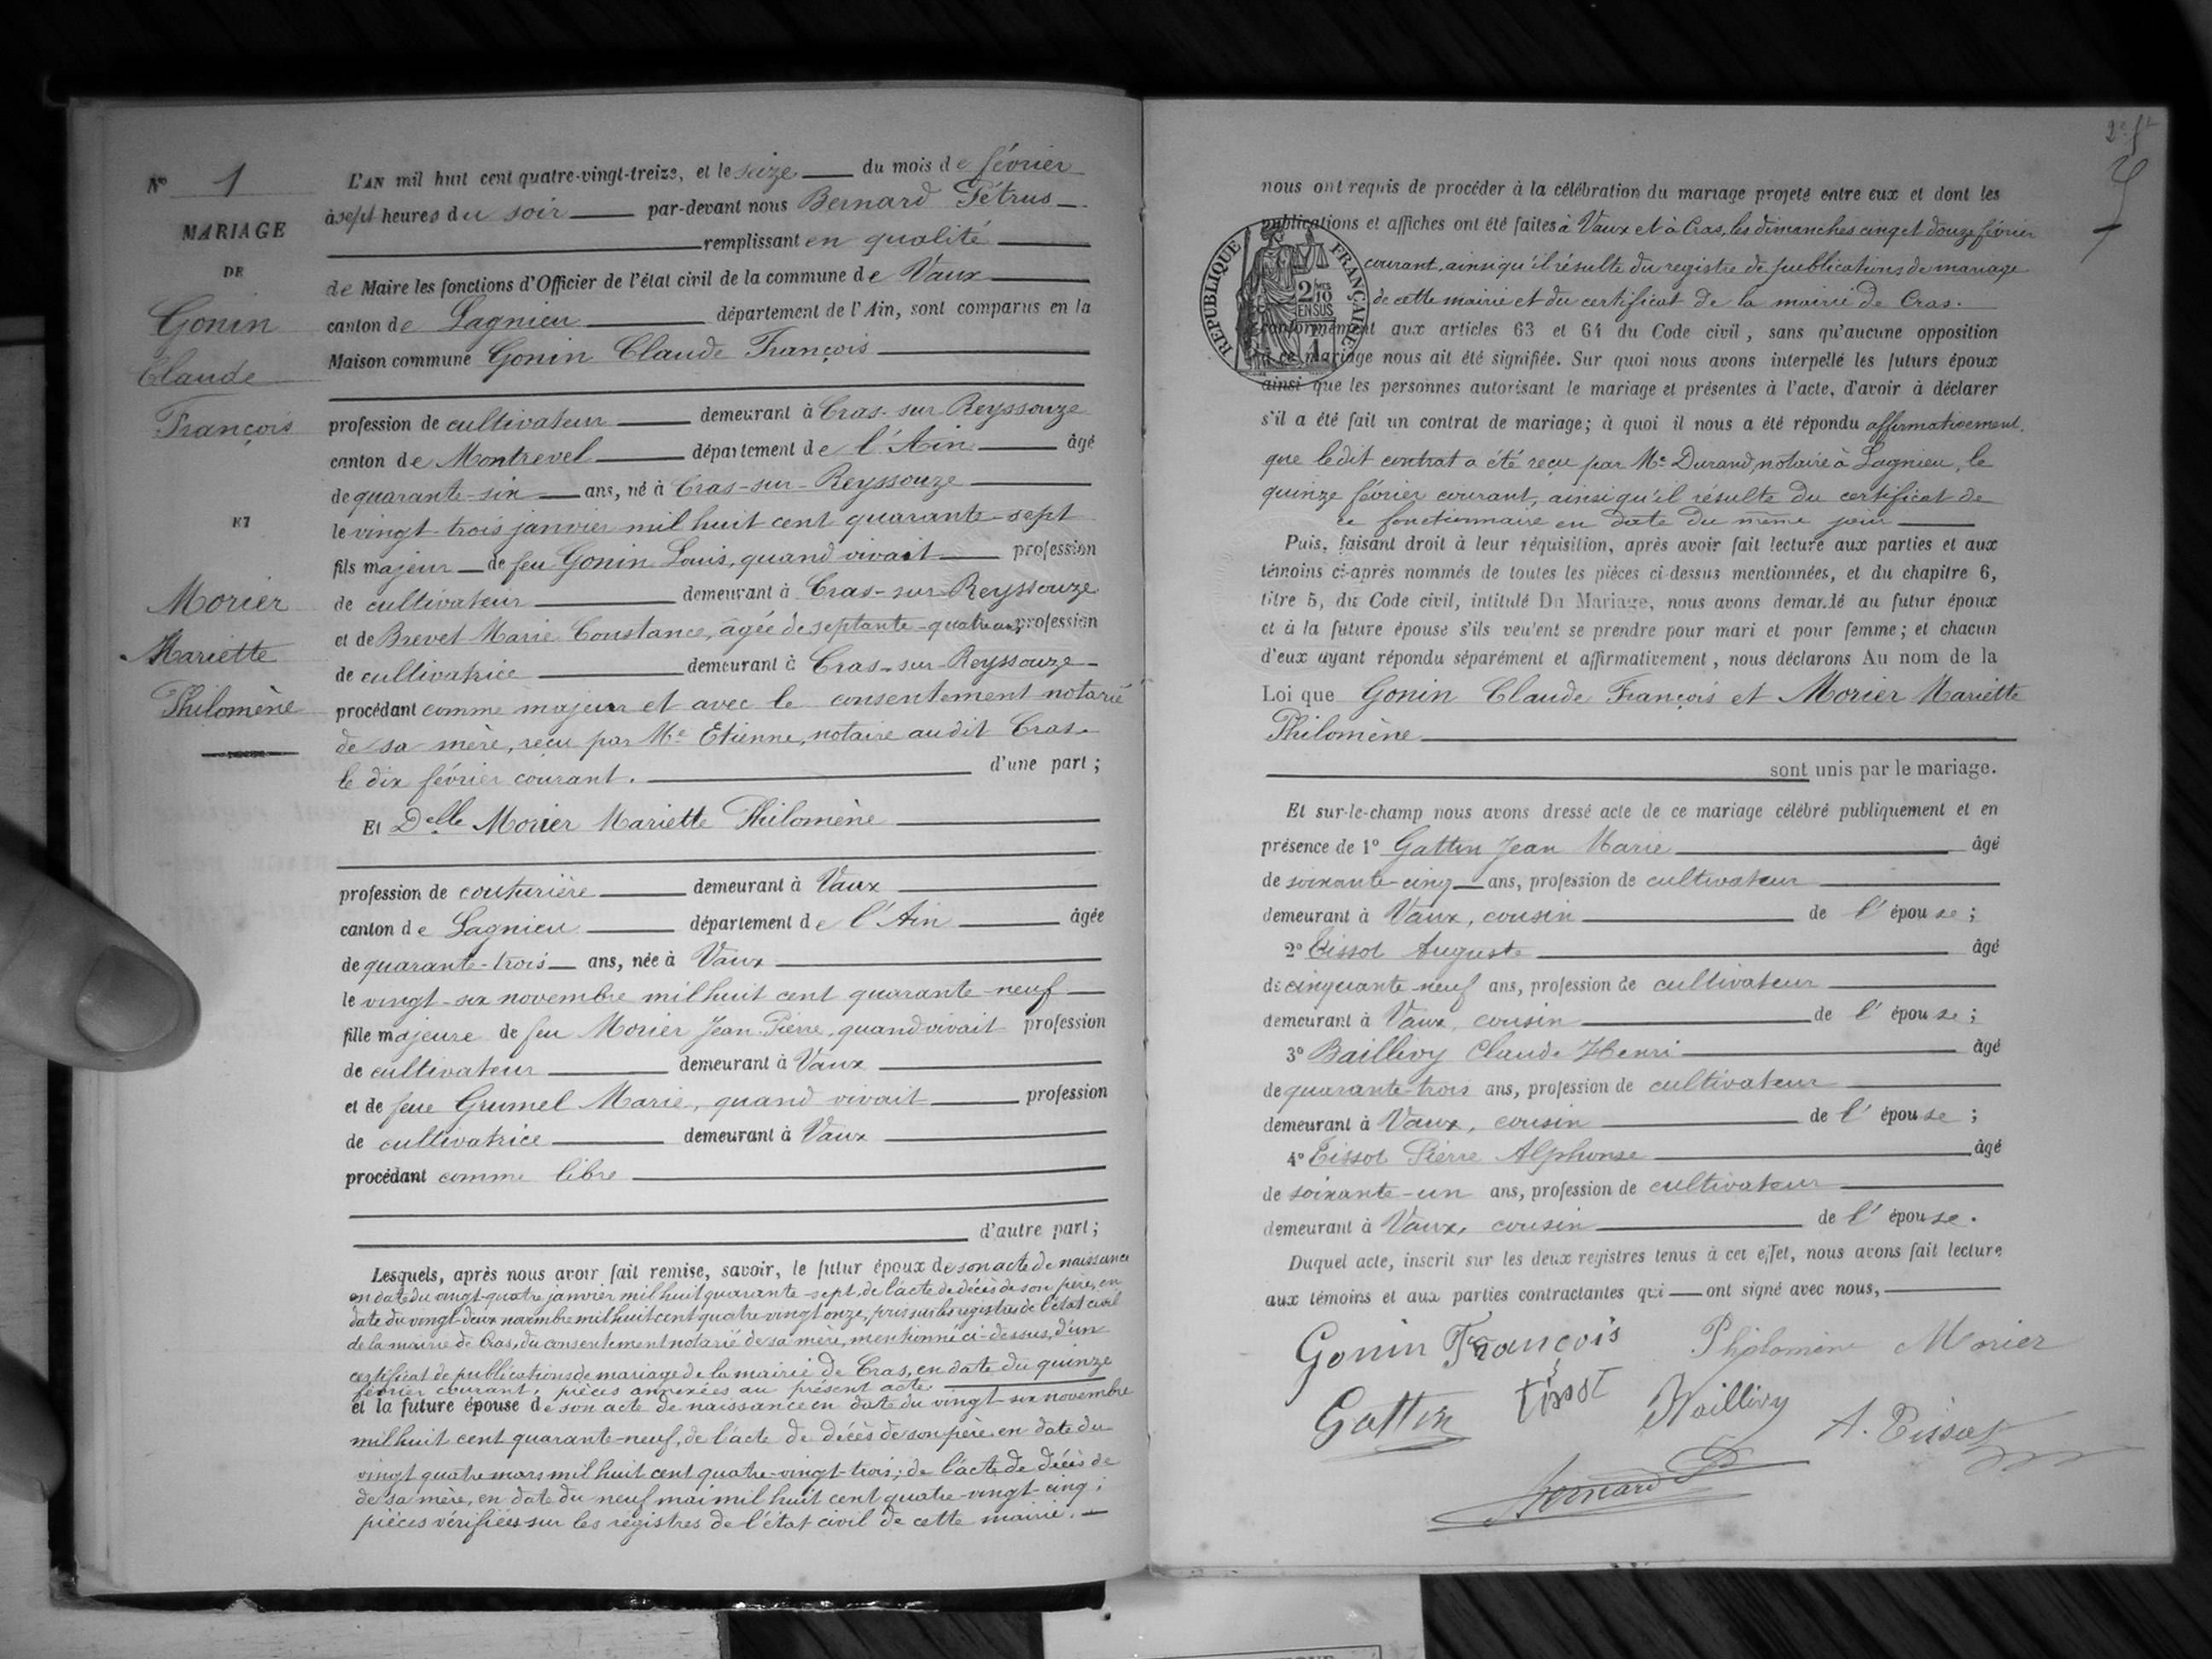 N° 1
MARIAGE
DE
Gonin
Claude
François
ET
Morier
Mariette
Philomène
L'AN mil huit cent quatre-vingt-treize, et le seize du mois de février
à sept heures du soir par-devant nous Bernard Pétrus
remplissant en qualité
de Maire les fonctions d'Officier de l'état civil de la commune de Vaux
canton de Lagnieu département de l'Ain, sont comparus en la
Maison commune Gonin Claude François
profession de cultivateur demeurant à Cras-sur-Reyssouze
canton de Montrevel département de l'Ain âgé
de quarante-six ans, né à Cras-sur-Reyssouze
le vingt-trois janvier mil huit cent quarante-sept
fils majeur de feu Gonin Louis, quand vivait profession
de cultivateur demeurant à Cras-sur-Reyssouze
et de Brevet Marie Constance, âgée de septante-quatre ans, profession
de cultivatrice demeurant à Cras-sur-Reyssouze
procédant comme majeur et avec le consentement notarié
de sa mère, reçu par Me Etienne, notaire audit Cras
le dix février courant. d'une part ;
Et Delle Morier Mariette Philomène
profession de couturière demeurant à Vaux
canton de Lagnieu département de l'Ain âgée
de quarante-trois ans, née à Vaux
le vingt-six novembre mil huit cent quarante-neuf
fille majeure de feu Morier Jean Pierre, quand vivait profession
de cultivateur demeurant à Vaux
et de feue Grumel Marie, quand vivait profession
de cultivatrice demeurant à Vaux
procédant comme libre
d'autre part ;
Lesquels, après nous avoir fait remise, savoir, le futur époux de son acte de naissance
en date du vingt-quatre janvier mil huit quarante-sept, de l'acte de décès de son père, en
date du vingt-deux novembre mil huit cent quatre-vingt onze, pris sur les registres de l'état civil
de la mairie de Cras, du consentement notarié de sa mère, mentionné ci-dessus, d'un
certificat de publications de mariage de la mairie de Cras, en date du quinze
février courant, pièces annexées au présent acte
et la future épouse de son acte de naissance en date du vingt-six novembre
mil huit cent quarante-neuf, de l'acte de décès de son père en date du
vingt quatre mars mil huit cent quatre-vingt-trois ; de l'acte de décès de
de sa mère, en date du neuf mai mil huit cent quatre-vingt-cinq ;
pièces vérifiées sur les registres de l'état civil de cette mairie.
2e ft
nous ont requis de procéder à la célébration du mariage projeté entre eux et dont les
publications et affiches ont été faites à Vaux et à Cras, les dimanches cinq et douze février
courant, ainsi qu'il résulte du registre de publications de mariage
de cette mairie et du certificat de la mairie de Cras.
RÉPUBLIQUE FRANÇAISE
2/10
EN SUS
conformément aux articles 63 et 64 du Code civil, sans qu'aucune opposition
à ce mariage nous ait été signifiée. Sur quoi nous avons interpellé les futurs époux
ainsi que les personnes autorisant le mariage et présentes à l'acte, d'avoir à déclarer
s'il a été fait un contrat de mariage ; à quoi il nous a été répondu affirmativement.
que ledit contrat a été reçu par Me Durand, notaire à Lagnieu, le
quinze février courant, ainsi qu'il résulte du certificat de
ce fonctionnaire en date du même jour
Puis, faisant droit à leur réquisition, après avoir fait lecture aux parties et aux
témoins ci-après nommés de toutes les pièces ci-dessus mentionnées, et du chapitre 6,
titre 5, du Code civil, intitulé Du Mariage, nous avons demandé au futur époux
et à la future épouse s'ils veulent se prendre pour mari et pour femme ; et chacun
d'eux ayant répondu séparément et affirmativement, nous déclarons Au nom de la
Loi que Gonin Claude François et Morier Mariette
Philomène
sont unis par le mariage.
Et sur-le-champ nous avons dressé acte de ce mariage célébré publiquement et en
présence de 1° Gattin Jean Marie âgé
de soixante-cinq ans, profession de cultivateur
demeurant à Vaux, cousin de l'épouse ;
2° Tissot Auguste âgé
de cinquante-neuf ans, profession de cultivateur
demeurant à Vaux, cousin de l'épouse ;
3° Baillivy Claude Henri âgé
de quarante-trois ans, profession de cultivateur
demeurant à Vaux, cousin de l'épouse ;
4° Tissot Pierre Alphonse âgé
de soixante-un ans, profession de cultivateur
demeurant à Vaux, cousin de l'épouse.
Duquel acte, inscrit sur les deux registres tenus à cet effet, nous avons fait lecture
aux témoins et aux parties contractantes qui ont signé avec nous,
Gonin François Philomène Morier
Gattin Tissot Baillivy A. Tissot
Bernard P